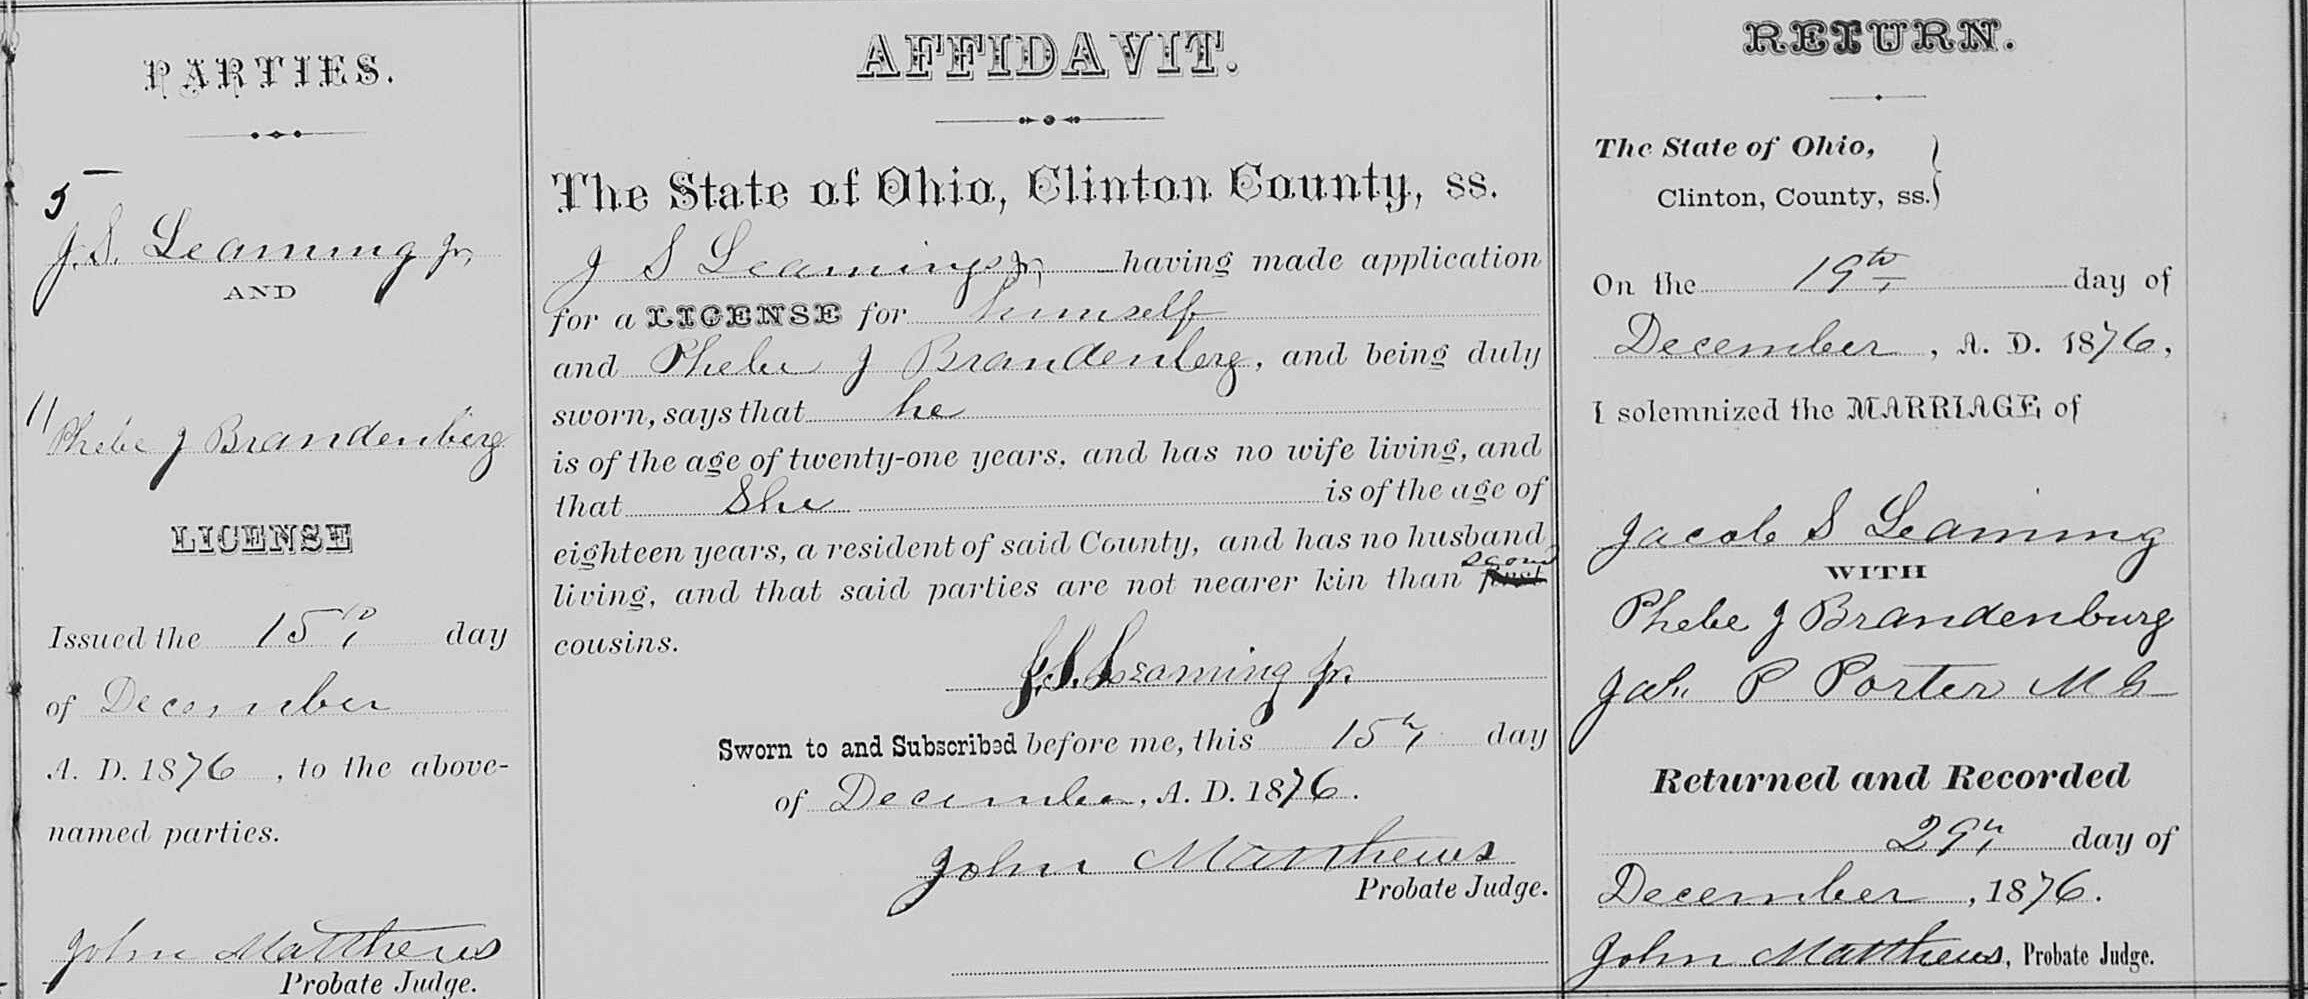 PARTIES.
5
J. S. Leaming Jr,
AND
11
Phebe J Brandenberg
LICENSE
Issued the 15th day
of December
A. D. 1876, to the above-
named parties.
John Matthews
Probate Judge.
AFFIDAVIT.
The State of Ohio, Clinton County, ss.
J S Leaming Jr, having made application
for a LICENSE for himself
and Phebe J Brandenberg, and being duly
sworn, says that he
is of the age of twenty-one years, and has no wife living, and
that She is of the age of
eighteen years, a resident of said County, and has no husband
living, and that said parties are not nearer kin than first second
cousins.
J. S. Leaming Jr.
Sworn to and Subscribed before me, this 15th day
of December, A. D. 1876.
John Matthews
Probate Judge.
RETURN.
The State of Ohio,
Clinton, County, ss.
On the 19th day of
December, A. D. 1876,
I solemnized the MARRIAGE, of
Jacob S Leaming
WITH
Phebe J Brandenburg
P Porter M G
Returned and Recorded
29th day of
December, 1876.
John Matthews, Probate Judge.